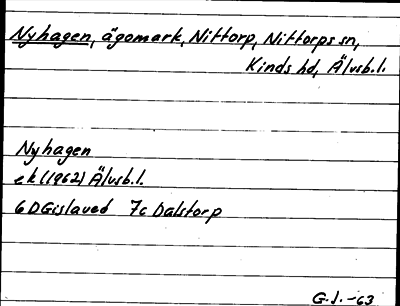 Nyhagen, ägomark, Nittorp, Nittorps sn,
Kinds hd, Älvsb.l.
Nyhagen
ek (1962) Älvsb.l.
6D Gislaved 7c Dalstorp
G.J. -63